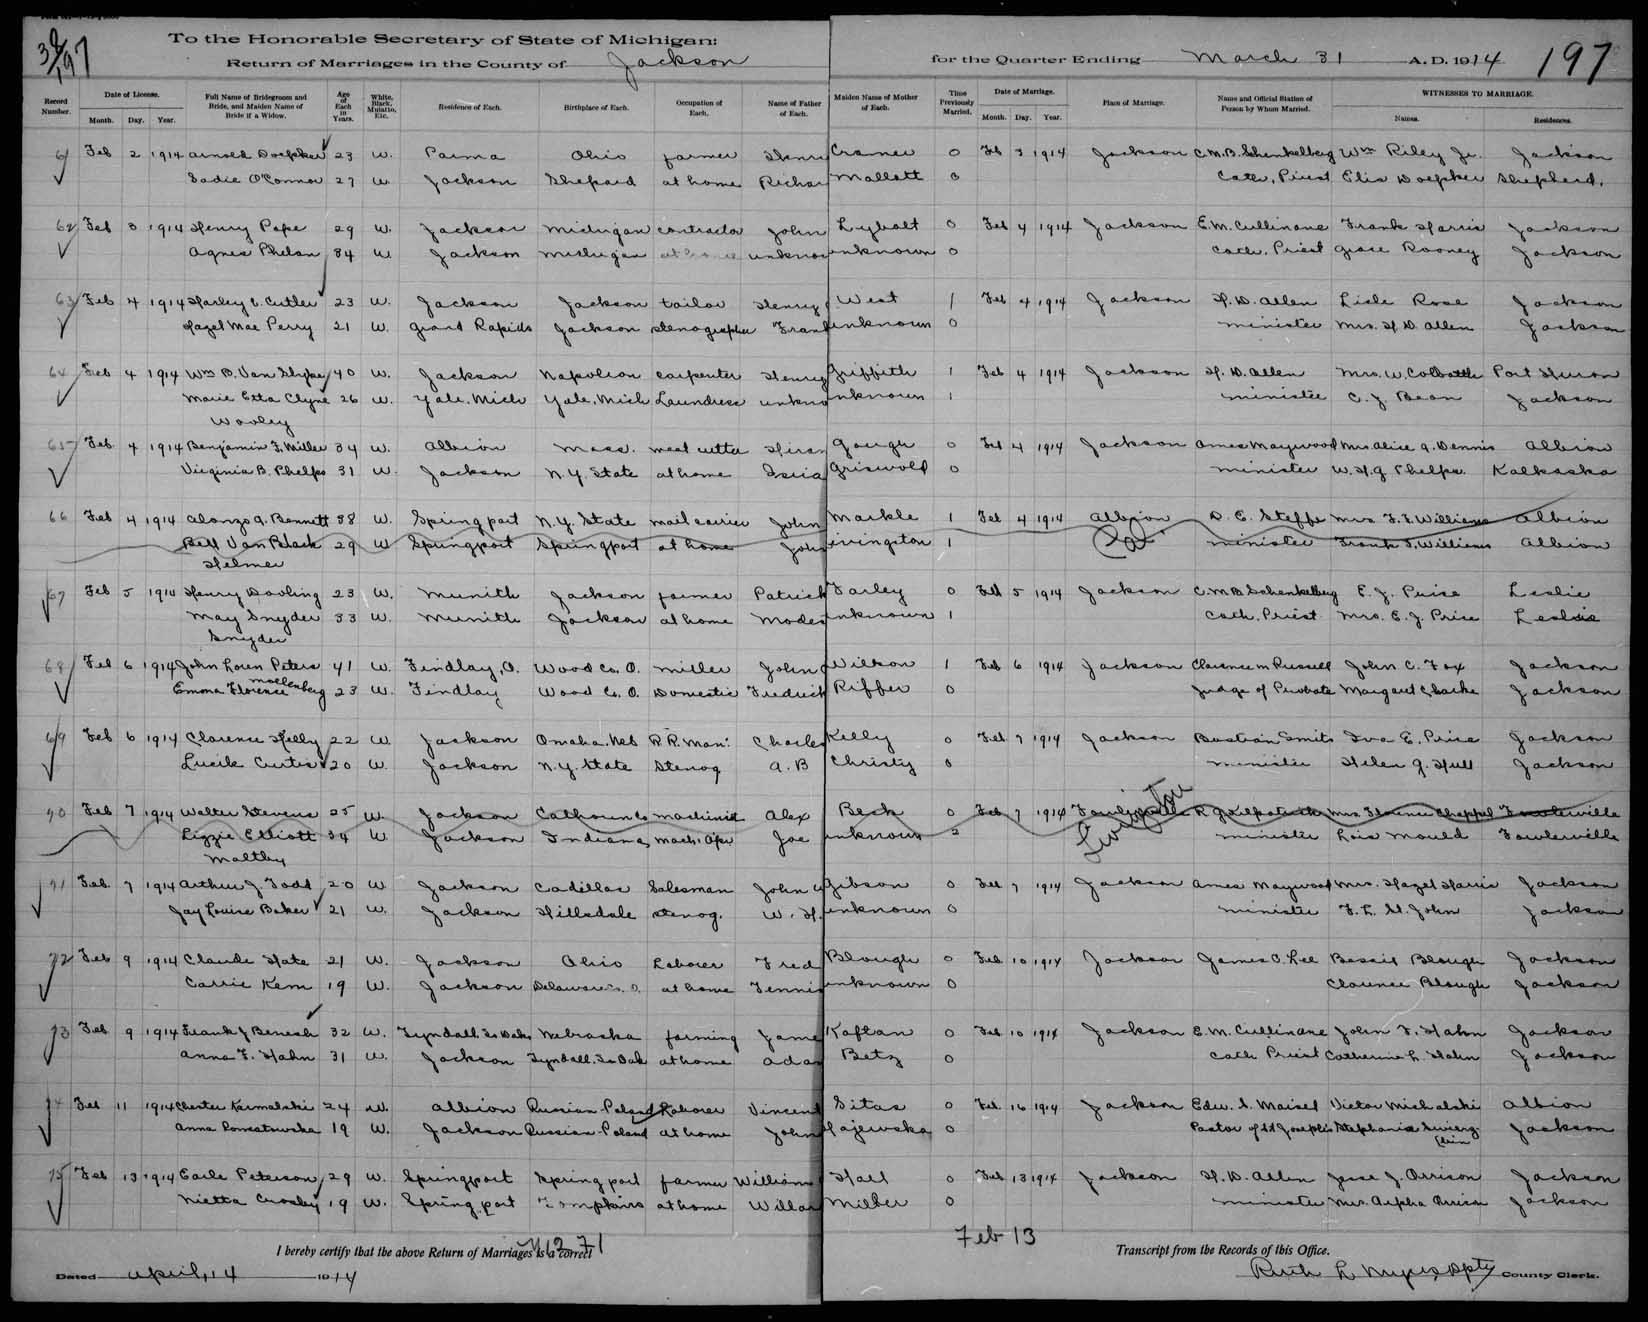 3 9/197
To the Honorable Secretary of State of Michigan:
Return of Marriages in the County of Jackson for the Quarter Ending March 31 A. D. 1914 197
Record Number. Date of License. Month. Day. Year. Full Name of Bridegroom and Bride, and Maiden Name of Bride if a Widow. Age of Each in Years. White, Black, Mulatto, Etc. Residence of Each. Birthplace of Each. Occupation of Each. Name of Father of Each. Maiden Name of Mother of Each. Time Previously Married. Date of Marriage. Month. Day. Year. Place of Marriage. Name and Official Station of Person by Whom Married. WITNESSES TO MARRIAGE. Names. Residences.
61 Feb 2 1914 Arnold Doepker 23 W. Parma Ohio farmer Henri Cramer 0 Feb 3 1914 Jackson C.M.B. Schenkelberg Wm Riley Jr. Jackson
Sadie O'Connor 27 W. Jackson Shepard at home Richar Mallott 0 Cath. Priest Elis Doepker Shepherd.
62 Feb 3 1914 Henry Pape 29 W. Jackson Michigan contractor John Lybolt 0 Feb 4 1914 Jackson E.M. Cullinane Frank Harris Jackson
Agnes Phelan 34 W Jackson Michigan at home unknow unknown 0 Cath. Priest Grace Rooney Jackson
63 Feb 4 1914 Harley E. Cutler 23 W. Jackson Jackson tailor Henry West 1 Feb 4 1914 Jackson H. D. Allen Lisle Rose Jackson
Hazel Mae Perry 21 W. Grand Rapids Jackson stenographer Frank unknown 0 minister Mrs. H. D. Allen Jackson
64 Feb 4 1914 Wm B. Van Slyke 40 W. Jackson Napoleon carpenter Henry Griffith 1 Feb 4 1914 Jackson H. D. Allen Mrs. W. Port Huron
Marie Etta Clyne 26 W. Yale, Mich Yale, Mich Laundress unkno unknown 1 minister C. J. Bean Jackson
Wooley
65 Feb 4 1914 Benjamin F. Miller 34 W. Albion Mass. meat cutter Hiram Gough 0 Feb 4 1914 Jackson Ames Maywood Mrs Alice A. Dennis Albion
Virginia B. Phelps 31 W. Jackson N.Y. State at home Griswold 0 minister W. H. G Phelps Kalkaska
66 Feb 4 1914 Alonzo A. Bennett 38 W. Springport N.Y. State mail carrier John Markle 1 Feb 4 1914 Albion D. E. Steffe Mrs F. F. Williams Albion
Bell Van Black 29 W Springport Springport at home John ivingston 1 Ca minister Frank F. Williams Albion
Helmer
67 Feb 5 1914 Henry Dowling 23 W. Munith Jackson farmer Patrick Farley 0 Feb 5 1914 Jackson C.M.B Schenkelberg E. J. Price Leslie
May Snyder 33 W. Munith Jackson at home Modes unknown 1 Cath. Priest Mrs. E. J. Price Leslie
Snyder
68 Feb 6 1914 John Loren Peters 41 W. Findlay, O. Wood Co. O. miller John Wilson 1 Feb 6 1914 Jackson Clarence M Russell John C. Fox Jackson
Emma Florence Mollenberg 23 W. Findlay Wood Co. O. Domestic Fredrick Riffer 0 Judge of Probate Margaret Clarke Jackson
69 Feb 6 1914 Clarence Kelly 22 W. Jackson Omaha. Neb R.R. Man. Charles Kelly 0 Feb 7 1914 Jackson Bastian Smits Iva E. Price Jackson
Lucile Curtis 20 W. Jackson N.Y. State Stenog A. B Christy 0 minister Helen J. Hull Jackson
70 Feb 7 1914 Walter Stevens 25 W. Jackson Calhoun Co machinist Alex Beck 0 Feb 7 1914 Fowlerville Livingston Mrs Florence Chappel Fowlerville
Lizzie Elliott 34 W Jackson Indiana Mach. Oper Joe unknown 2 minister Lois Mould Fowlerville
Maltby
71 Feb. 7 1914 Arthur J. Todd 20 W Jackson Cadillac Salesman John W Gibson 0 Feb 7 1914 Jackson Ames Maywood Mrs. Hazel Harris Jackson
Jay Louise Baker 21 W. Jackson Hillsdale stenog. W. H. unknown 0 minister F. L. St. John Jackson
72 Feb 9 1914 Claude Hate 21 W. Jackson Ohio Laborer Fred Blough 0 Feb 10 1914 Jackson James O. Lee Bessie Blough Jackson
Carrie Kern 19 W. Jackson Delaware Co. O. at home Tennis unknown 0 Clarence Blough Jackson
73 Feb 9 1914 Frank J Benesh 32 W. Tyndall So Dak Nebraska farming Jame Kaftan 0 Feb 10 1914 Jackson E. M. Cullinane John F. Hahn Jackson
Anna F. Hahn 31 W. Jackson Tyndall. So Dak at home Adam Betz 0 Cath Priest Catherine L. Hahn Jackson
74 Feb 11 1914 Chester Karmalski 24 W. Albion Russian Poland Laborer Vincent Sitas 0 Feb. 16 1914 Jackson Edw. S. Maisel Victor Michalski Albion
Anna 19 W. Jackson Russian Poland at home John Majewska 0 Pastor of St Joseph's Stephania Jackson
75 Feb 13 1914 Earle Peterson 29 W. Springport Springport farmer William Hall 0 Feb 13 1914 Jackson H. D. Allen Jesse J. Orrison Jackson
Nietta Crosby 19 W. Springport Tompkins at home Willar Milber 0 minister Mrs. Alpha Orrison Jackson
Feb 13
I hereby certify that the above Return of Marriages is a correct Transcript from the Records of this Office.
Dated April, 14 1914 Ruth L Myers Dpty County Clerk.